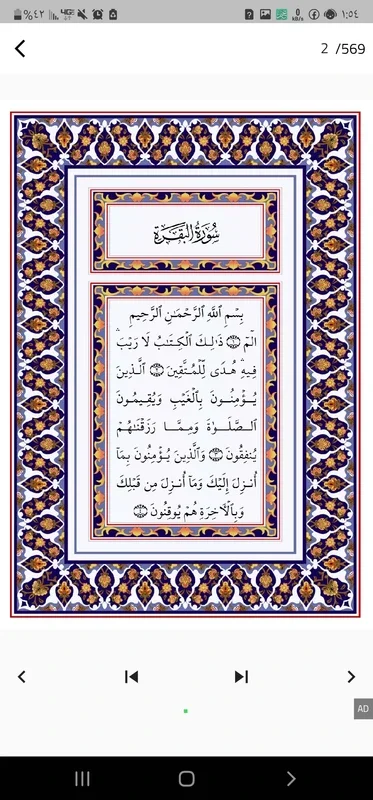 %٤٢
١:٥٤
2 /569
سُورَةُ البَقَرَةِ
بِسْمِ ٱللَّهِ ٱلرَّحْمَـٰنِ ٱلرَّحِيمِ
الٓمٓ ۝ ذَٰلِكَ ٱلْكِتَـٰبُ لَا رَيْبَ ۛ
فِيهِ ۛ هُدًى لِّلْمُتَّقِينَ ۝ ٱلَّذِينَ
يُؤْمِنُونَ بِٱلْغَيْبِ وَيُقِيمُونَ
ٱلصَّلَوٰةَ وَمِمَّا رَزَقْنَـٰهُمْ
يُنفِقُونَ ۝ وَٱلَّذِينَ يُؤْمِنُونَ بِمَآ
أُنزِلَ إِلَيْكَ وَمَآ أُنزِلَ مِن قَبْلِكَ
وَبِٱلْـَٔاخِرَةِ هُمْ يُوقِنُونَ ۝
AD